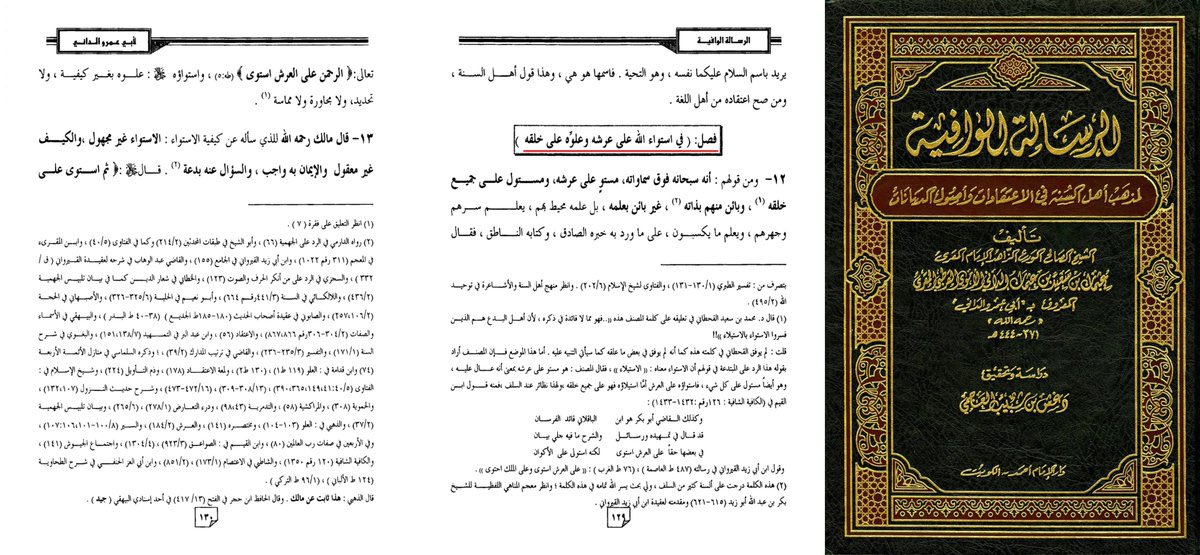 الرسالة الوافية
لمذهب أهل السنة في الاعتقادات وأصول الديانات
تأليف
المعروف بـ "أبي عمرو الداني"
رحمه الله
٣٧١-٤٤٤هـ
دراسة وتحقيق
دار الإمام أحمد - الكويت
الرسالة الوافية
يريد باسم السلام عليكما نفسه ، وهو التحية . فاسمها هو هي ، وهذا قول أهل السنة ،
ومن صح اعتقاده من أهل اللغة .
فصل: ( في استواء الله على عرشه وعلوِّه على خلقه )
١٢- ومن قولهم : أنه سبحانه فوق سماواته، مستوٍ على عرشه، ومستول على جميع
خلقه (١) ، وبائن منهم بذاته (٢) ، غير بائن بعلمه ، بل علمه محيط بهم ، يعلم سرهم
وجهرهم ، ويعلم ما يكسبون ، على ما ورد به خبره الصادق ، وكتابه الناطق ، فقال
بتصرف من : تفسير الطبري (١/ ١٣٠-١٣١) ، والفتاوى لشيخ الإسلام (٢٠٢/٦) . وانظر منهج أهل السنة والأشاعرة في توحيد
الله (٤٩٥/٢)
(١) قال د. محمد بن سعيد القحطاني في تعليقه على كلمة المصنف هذه ((..فهو مما لا فائدة في ذكره ، لأن أهل البدع هم الذين
فسروا الاستواء بالاستيلاء )) !!
قلت : لم يوفق القحطاني في كلمته هذه كما أنه لم يوفق في بعض ما علقه كما سيأتي التنبيه عليه . أما هذا الموضع فإن المصنف أراد
بقوله هذا الرد على المبتدعة في قولهم أن الاستواء معناه : (( الاستيلاء )) ، فقال المصنف : هو مستو على عرشه بمعنى أنه عال عليه ،
وهو أيضاً مستول على كل شيء ، فاستواؤه على العرش أمّا استيلاؤه فهو على جميع خلقه ولهذا نظائر عند السلف ، فمنه قول ابن
القيم في (الكافية الشافية : ١٢٦رقم:١٤٣٢-١٤٣٣)
وكذلك القاضي أبو بكر هو ابن الباقلاني قائد الفرسان
قد قال في تمهيده ورسائل والشرح ما فيه جلي بيان
في بعضها حقاً على العرش استوى لكنه استولى على الأكوان
وقول ابن أبي زيد القيرواني في رسالته (٤٨٧ ط العاصمة ) ، (٧٦ ط الغرب ) : (( على العرش استوى وعلى الملك احتوى )) .
(٢) هذه الكلمة درجت على ألسنة كثير من السلف ، ولي بحث يسر الله تمامه في هذه الكلمة ؛ وانظر معجم المناهي اللفظية للشيخ
بكر بن عبد الله أبو زيد (٦١٥-٦٢١) ومقدمته لعقيدة ابن أبي زيد القيرواني .
١٢٩
لأبي عمرو الداني
تعالى:﴿ الرحمن على العرش استوى ﴾ (طه:٥) ، واستواؤه ﷻ : علوه بغير كيفية ، ولا
تحديد، ولا مجاورة ولا مماسة (١) .
١٣- قال مالك رحمه الله للذي سأله عن كيفية الاستواء : الاستواء غير مجهول ،والكيف
غير معقول والإيمان به واجب ، والسؤال عنه بدعة (٢) . قال:﴿ ثم استوى على
(١) انظر التعليق على فقرة ( ٧ ) .
(٢) رواه الدارمي في الرد على الجهمية (٦٦) ، وأبو الشيخ في طبقات المحدّثين (٢١٤/٢) وكما في الفتاوى (٤٠/٥) ، وابن المقرىء
في المعجم (٣١١ رقم ١٠٢٢) ، وابن أبي زيد القيرواني في الجامع (١٥٥) ، والقاضي عبد الوهاب في شرحه لعقيدة القيرواني (ق /
٣٣٢) ، والسجزي في الرد على من أنكر الحرف والصوت (١٢٣) ، والخطابي في شعار الدين كما في بيان تلبيس الجهمية
(٤٣٦/٢) ، واللالكائي في السنة (٤٤١/٣رقم٦٦٤) ، وأبو نعيم في الحلية (٣٢٥/٦-٣٢٦) ، والأصبهاني في الحجة
(١٠٦،٢٥٧/٢) ، والصابوني في عقيدة أصحاب الحديث (١٨٠-١٨٥ط الجديع ) (٣٨-٤٠ ط البدر ) ، والبيهقي في الأسماء
والصفات (٣٠٤/٢-٣٠٦رقم٨٦٧،٨٦٦) ، والاعتقاد (٥٦) ، وابن عبد البر في التمهيد (١٥١،١٣٨/٧) ، والبغوي في شرح
السنة (١٧١/١) ، والتفسير (٢٣٥/٣-٢٣٦) ، والقاضي في ترتيب المدارك (٣٩/٢) ، ؛ وذكره السلماسي في منازل الأئمة الأربعة
(٧٤) وابن قدامة في : العلو (١١٩ ط١) ، (١٣٠ ط٢) ، ولمعة الاعتقاد (١٧٨) ، وذم التأويل (٢٢٤) ، وشيخ الإسلام في :
والحموية (٣٠٨) ، والمراكشية (٥٨) ، والتدمرية (٩٨،٤٣) ، ودرء التعارض (٢٧٨/١) ، (٢٦٥/٦) ، وبيان تلبيس الجهمية
(٣٧/٢) ، والذهبي في : العلو (١٠٣-١٠٤) ، ومختصره (١٤١) ، والعرش (١٨٤/٢) ، والسير (١٠٠/٨-١٠٦،١٠١-١٠٧)
وفي الأربعين في صفات رب العالمين (٨٠) ، وابن القيم في : الصواعق (٩٢٣/٣) ، (١٣٠٤/٤) ، واجتماع الجيوش (١٤١)
والكافية الشافية (١٢٠ رقم ١٣٥٠) ، والشاطبي في الاعتصام (١٧٣/١) ، (٨٥١/٢) ، وابن أبي العز الحنفي في شرح الطحاوية
(١٢٤ ط الألباني ) ، ( ٩٦/١ ط التركي ) .
قال الذهبي : هذا ثابت عن مالك . وقال الحافظ ابن حجر في الفتح (٤١٧/١٣ ) في أحد إسنادي البيهقي ( جيد ) .
١٣٠